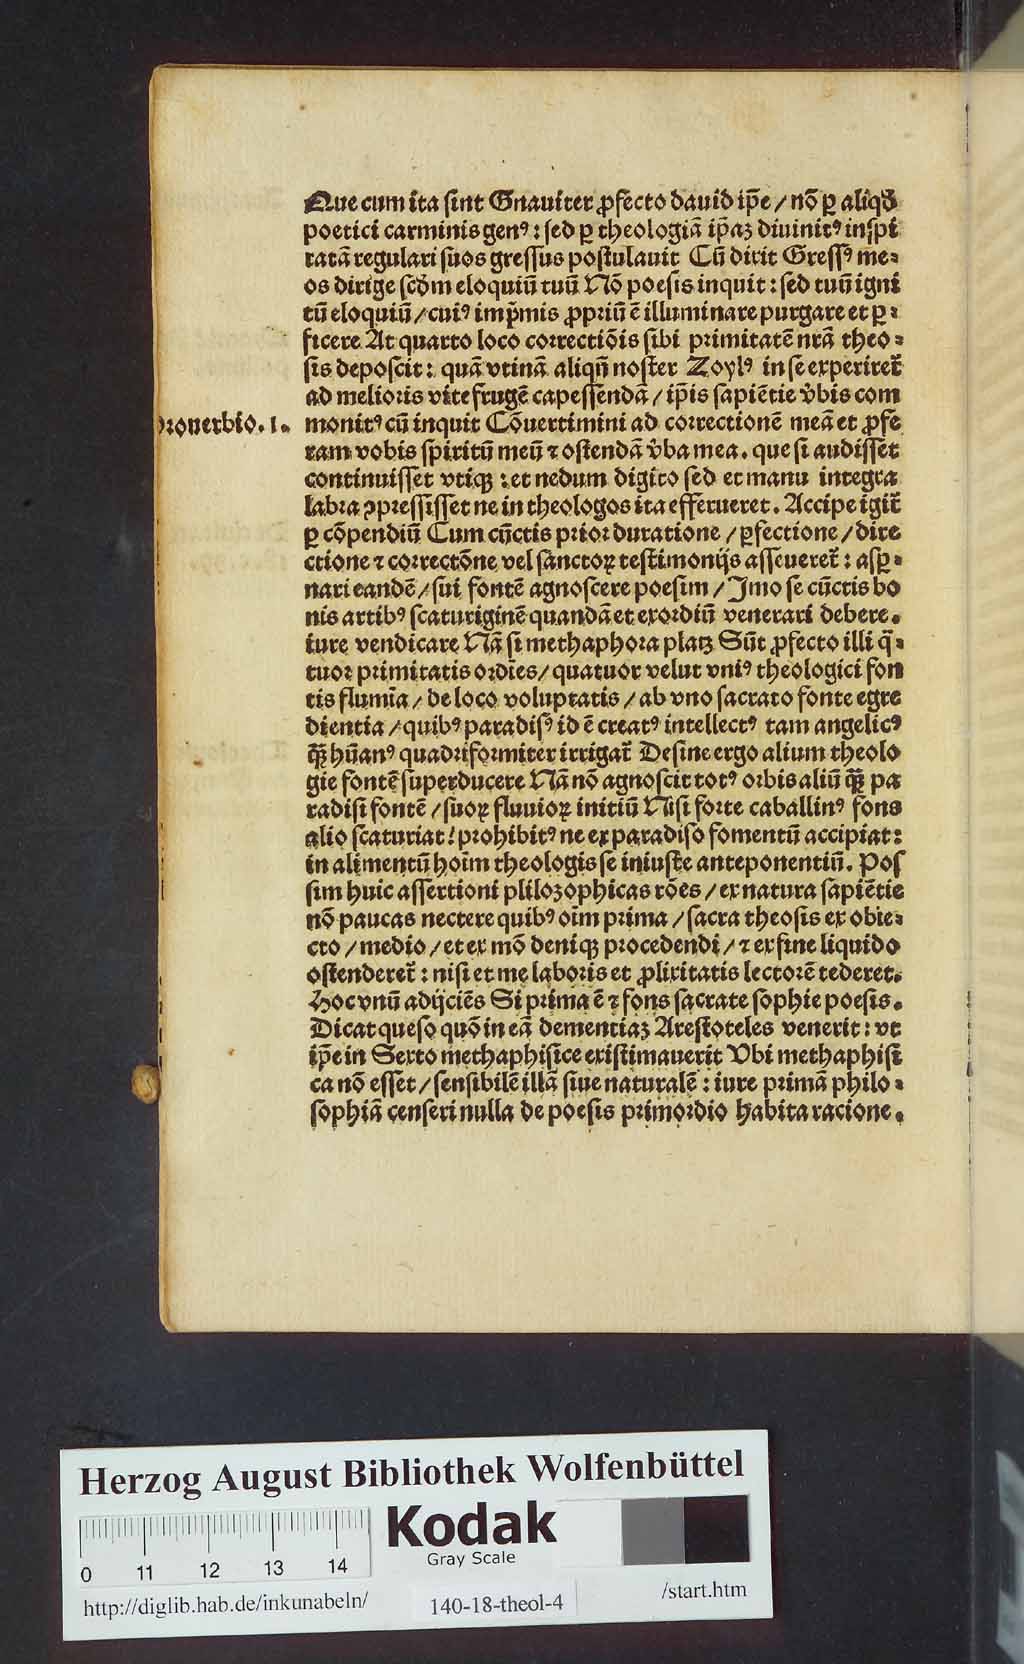 Que cum ita sint Gnauiter ꝓfecto dauid ip̄e / nō ꝑ aliqḋ
poetici carminis genꝰ : sed ꝑ theologiā ip̄aꝫ diuinitꝰ inspi
ratā regulari suos gressus postulauit Cū dixit Gressꝰ me⸗
os dirige scḋm eloquiū tuū Nō poesis inquit : sed tuū igni
tū eloquiū / cuiꝰ imp̄mis ꝓpriū ē illuminare purgare et ꝑ⸗
ficere At quarto loco correctiōis sibi primitatē nrā theo⸗
sis deposcit : quā vtinā aliqn̄ noster Zoylꝰ in se experiret᷑
ad melioris vite frugē capessendā / ip̄is sapiētie v̇bis com
Prouerbio. 1.
monitꝰ cū inquit Cōuertimini ad correctionē meā et ꝓfe
ram vobis spiritū meū ⁊ ostendā v̇ba mea. que si audisset
continuisset vtiqꝫ : et nedum digito sed et manu integra
labra ꝯpressisset ne in theologos ita efferueret. Accipe igit᷑
ꝑ cōpendiū Cum cūctis prior duratione / ꝑfectione / dire
ctione ⁊ correctōne vel sanctoꝝ testimonijs asseueret᷑ : aspꝑ⸗
nari eandē / sui fontē agnoscere poesim / Imo se cūctis bo
nis artibꝰ scaturiginē quandā et exordiū venerari debere.
iure vendicare Nā si methaphora platꝫ Sūt ꝓfecto illi q̄⸗
tuor primitatis ordīes / quatuor velut vniꝰ theologici fon
tis flumīa / de loco voluptatis / ab vno sacrato fonte egre
dientia / quibꝰ paradisꝰ id ē creatꝰ intellectꝰ tam angelicꝰ
qꝫ̄ hūanꝰ quadriformiter irrigat᷑ Desine ergo alium theolo
gie fontē superducere Nā nō agnoscit totꝰ orbis aliū qꝫ̄ pa
radisi fontē / suoꝝ fluuioꝝ initiū Nisi forte caballinꝰ fons
alio scaturiat : prohibitꝰ ne ex paradiso fomentū accipiat :
in alimentū hoīm theologis se iniuste anteponentiū. Pos
sim huic assertioni plilozophicas rōes / ex natura sapiētie
nō paucas nectere quibꝰ oīm prima / sacra theosis ex obie⸗
cto / medio / et ex mō deniqꝫ procedendi / ⁊ ex fine liquido
ostenderet᷑ : nisi et me laboris et ꝓlixitatis lectorē tederet.
Hoc vnū adijciēs Si prima ē ⁊ fons sacrate sophie poesis.
Dicat queso quō in eā dementiaꝫ Arestoteles venerit : vt
ip̄e in Sexto methaphisice existimauerit Vbi methaphisi
ca nō esset / sensibilē illā siue naturalē : iure primā philo⸗
sophiā censeri nulla de poesis primordio habita racione.
Herzog August Bibliothek Wolfenbüttel
Kodak
Gray Scale
0 11 12 13 14
http://diglib.hab.de/inkunabeln/
140-18-theol-4
/start.htm